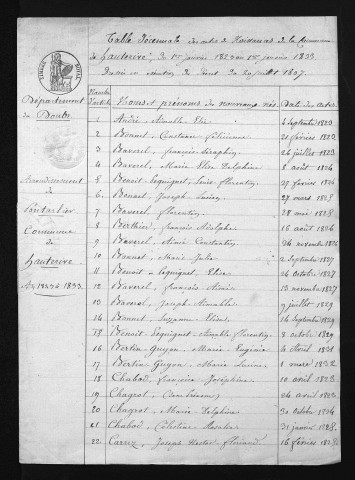 Table Décennale des actes de Naissances de la Commune
de hauterive, du 1er janvier 1823 au 1er janvier 1833.
Dressée en exécution du Décret du 20 juillet 1807.
Département
du Doubs
Arrondissement
de
Pontarlier
Commune
de
hauterive
1823 à 1833.
Noms et prénoms des nouveaux nés. Date des actes
1 André, Aimable Elie 4 Septembre 1823
2 Bonnet, Constance félicienne 21 février 1823
3 Baverel, françois Séraphin 26 juillet 1823
4 Baverel, Marie Elise Delphine 8 août 1824
5 Benoit-Seguignet, Louis florentin 27 février 1826
6 Bonnet, Joseph Lucien 27 mars 1828
7 Baverel, florentin 28 mai 1828
8 Berthier, françois Adolphe 16 août 1826
9 Baverel, Aimé Constantin 26 novembre 1826
10 Bonnet, Marie Julie 2 Septembre 1827
11 Benoit-Seguignet, Elise 26 octobre 1827
12 Baverel, françois Aimé 13 novembre 1827
13 Baverel, Joseph Aimable 9 juillet 1829
14 Bonnet, Suzanne Elise 14 Septembre 1829
15 Benoit Seguignet Aimable florentin 8 octobre 1829
16 Bertin-Guyon, Marie Eugénie 6 Avril 1831
17 Bertin Guyon, Marie Lucine 1 mars 1832
18 Chabod, françoise Joséphine 10 avril 1823
19 Chagrot, 24 avril 1823
20 Chagrot, Marie Delphine 30 octobre 1824
21 Chabod, Célestine Rosalie 31 janvier 1828
22 Carrez, Joseph Nestor florimond 16 février 1828